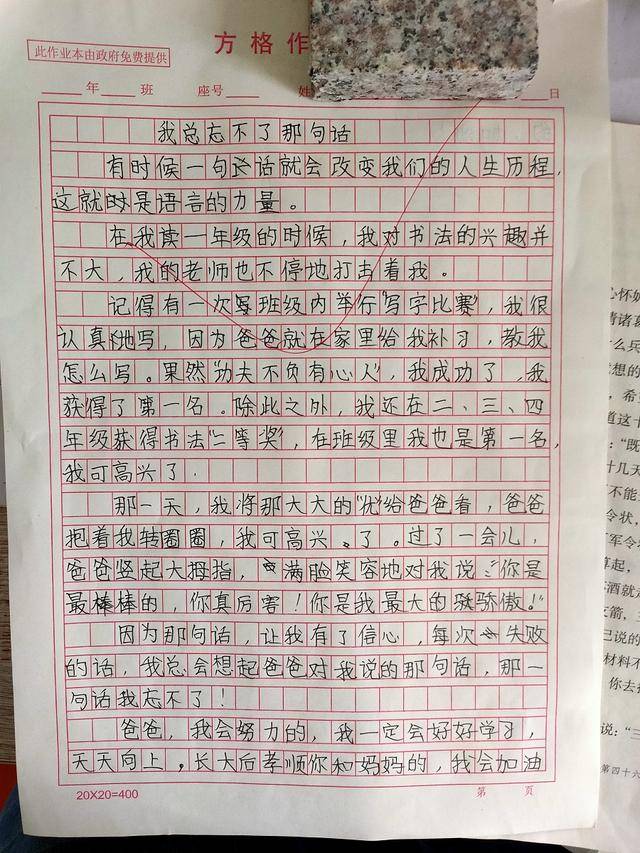 此作业本由政府免费提供
方格作
年 班 座号 姓 日
我总忘不了那句话
有时候一句话就会改变我们的人生历程，
这就是语言的力量。
在我读一年级的时候，我对书法的兴趣并
不大，我的老师也不停地打击着我。
记得有一次班级内举行“写字比赛”，我很
认真地写，因为爸爸就在家里给我补习，教我
怎么写。果然“功夫不负有心人”，我成功了，我
获得了第一名。除此之外，我还在二、三、四
年级获得书法“二等奖”，在班级里我也是第一名，
我可高兴了.
那一天，我将那大大的“优”给爸爸看，爸爸
抱着我转圈圈，我可高兴了。过了一会儿，
爸爸竖起大拇指，满脸笑容地对我说：“你是
最棒棒的，你真厉害！你是我最大的骄傲。”
因为那句话，让我有了信心，每次失败
的话，我总会想起爸爸对我说的那句话，那一
句话我忘不了！
爸爸，我会努力的，我一定会好好学习，
天天向上。长大后孝顺你和妈妈的，我会加油
20X20=400 第 页
心怀如
情诸葛
么兵
想的
，希
道这十
：“既
十几天
不能
令状，
军令
算起，
酒就走
支箭，
已说的
材料不
你去
说：“三
第四十六